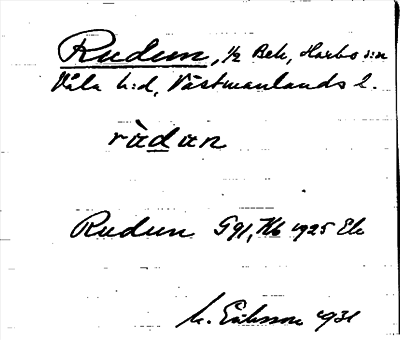 Rudun, 1/2 Bek, Harbo s:n
Våla h:d, Västmanlands l.
ràdan
Rudun G91, Kb 1925 Ek
M. Eriksson 1931